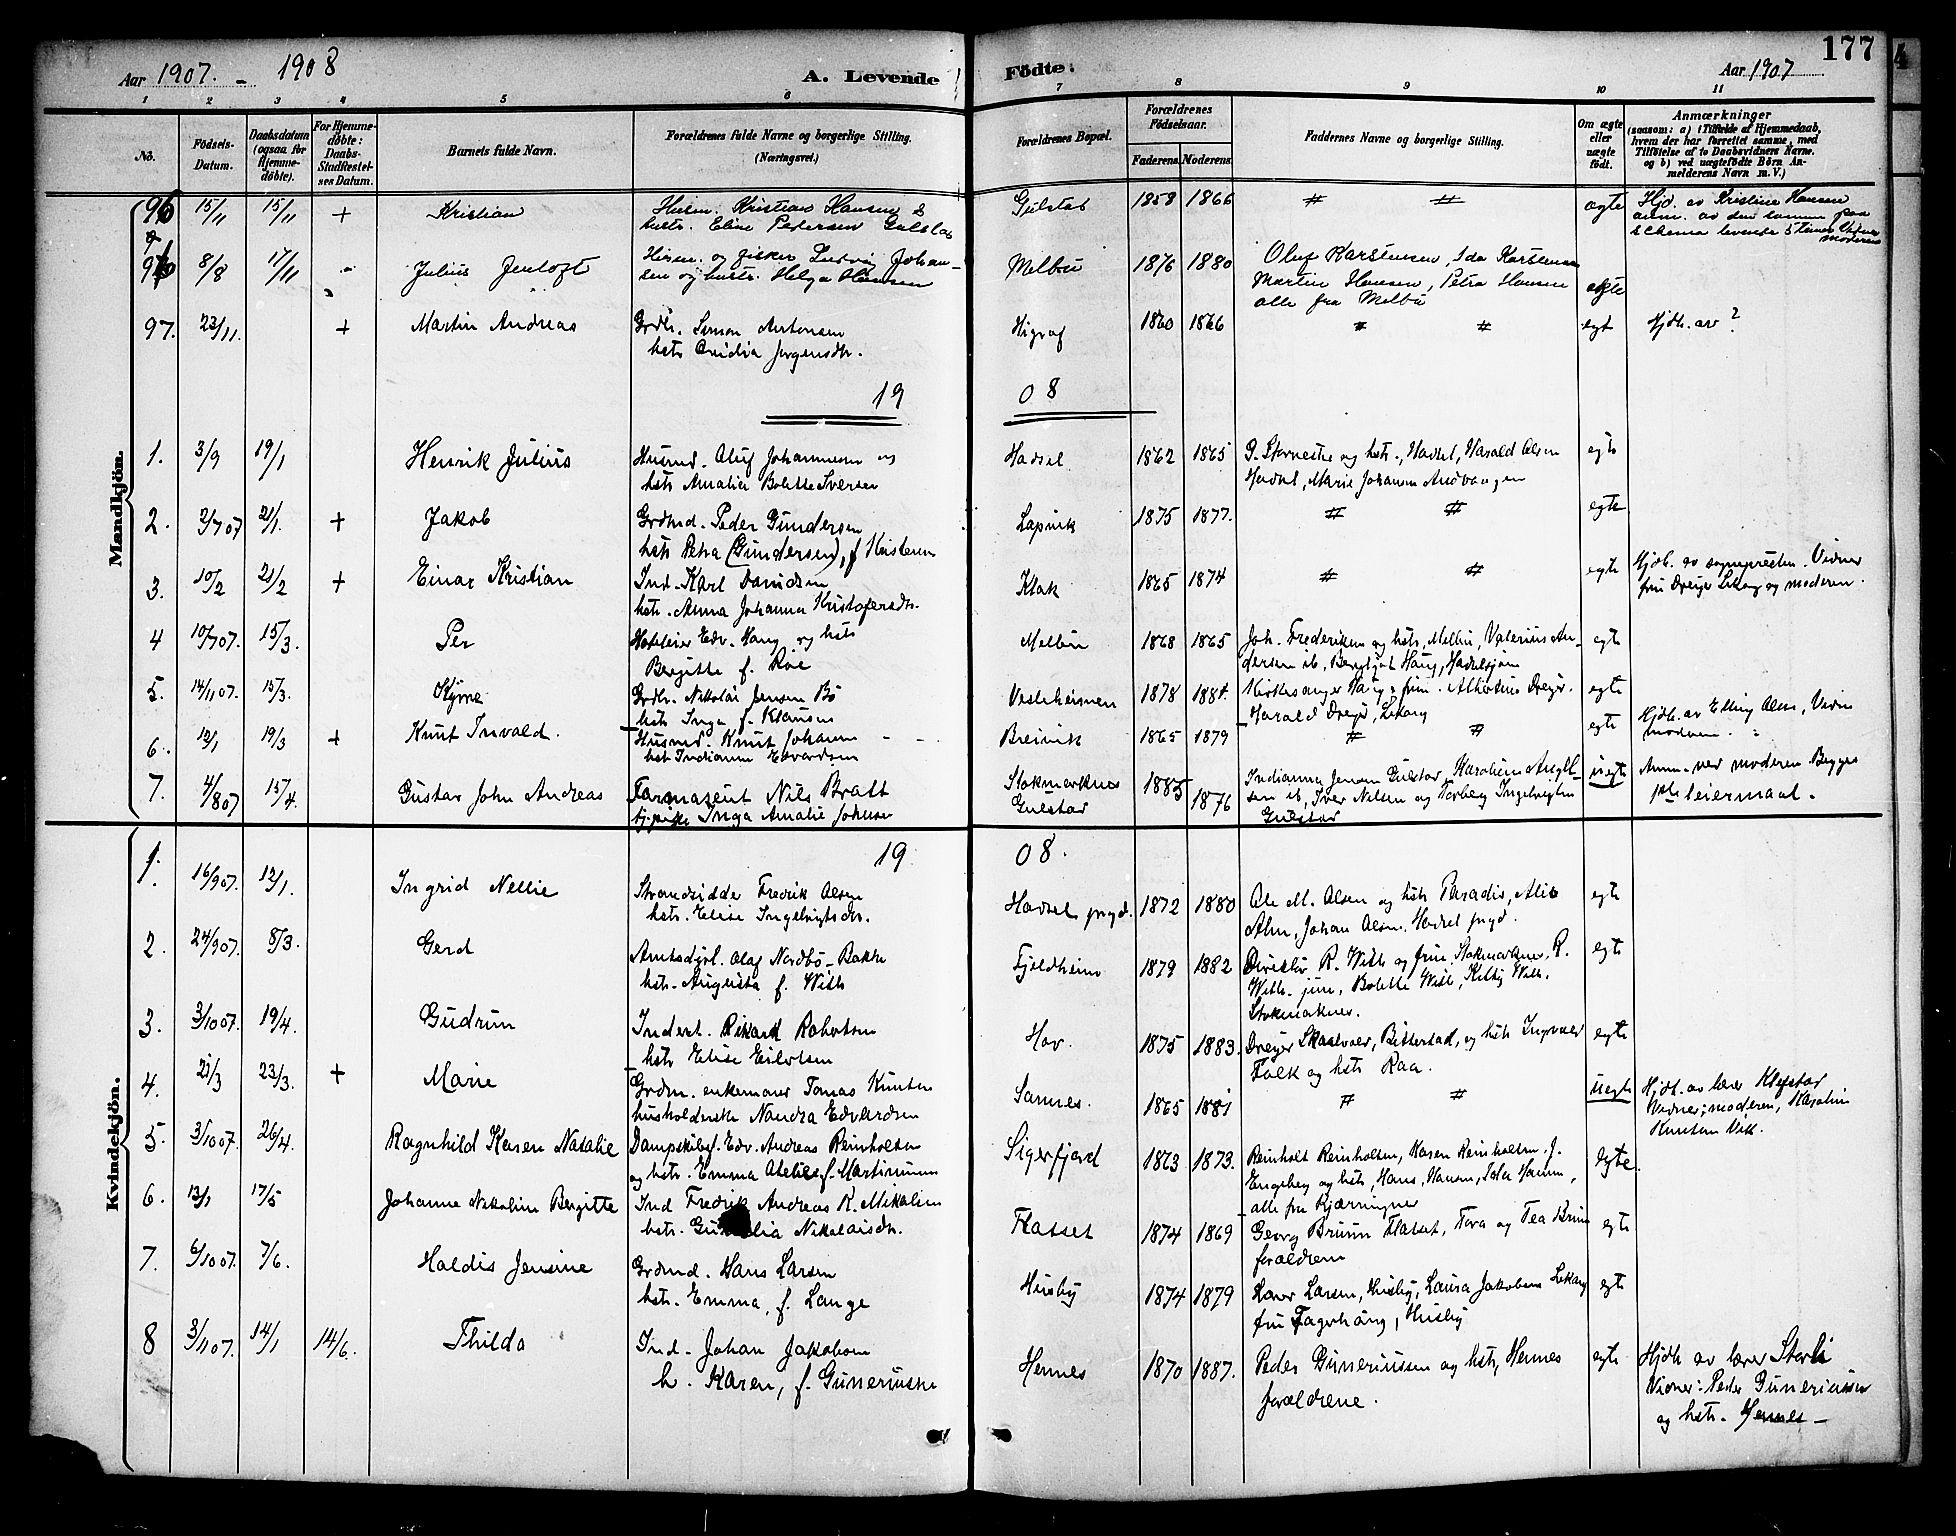 Aar 1907. - 1908
A. Levende
Födte.
Aar 1907
177
1 2 3 4 5 6 7 8 9 10 11
No.
Födsels-
Datum.
Daabsdatum
(ogsaa for
Hjemme-
döbte).
For Hjemme-
döbte:
Daabs-
Stadfestel-
ses Datum.
Barnets fulde Navn.
Forældrenes fulde Navne og borgerlige Stilling.
(Næringsvei.)
Forældrenes Bopæl.
Forældrenes
Födselsaar.
Faderens. Moderens.
Faddernes Navne og borgerlige Stilling.
Om ægte
eller
uægte
födt.
Anmærkninger
(saasom: a) i Tilfælde af Hjemmedaab,
hvem der har forrettet samme, med
Tilföielse af to Daabsvidners Navne,
og b) ved uægtefödte Börn An-
melderens Navn m. V.)
Mandkjön.
96 15/11 15/11 + Kristian
Kristian Hansen &
hustr. Eline Pedersen Gulstad
Gulstad 1858 1866 # # ægte
Hjd. av Kristine Hansen
8/8 17/11 Julius Jentoft
og fisker Ludvig Johan-
sen og hustr. Helga Hansen
Melbu 1876 1880
Oluf Karstensen, Ida Karstensen
Martin Hansen, Petra Hansen
alle fra Melbu
ægte
97. 23/11. + Martin Andreas
Grdbr. Simon Antonsen
hstr Ovidia Jørgensdtr.
Higrav 1860 1866 # # egt Hjdb. av ?
19 08
1. 3/9 19/1 Henrik Julius
Husmd. Oluf Johannesen og
hstr Amalia Bolette Iversen
Hadsel 1862 1865
og hstr., Hadsel, Harald Olsen
Hadsel, Marie Johansen
egte
2. 2/7 07 21/1. + Jakob
Grdmd. Peder Gundersen
hstr Petra (Gundersen), f
Lapvik 1875 1877. # # egte
3. 10/2 21/2 + Einar Kristian
Ind. Karl Davidsen
hstr. Anna Johanna Kristofersdtr.
Klak 1865 1874 # # egte
Hjdb. av sognepresten. Vidner
fru Dreyer Lekang og moderen.
4 10/7 07. 15/3. Per
Hotteleier Edv. Haug og hstr
Bergitte f. Roe
Melbu 1868 1865
Joh. Frederiksen og hstr, Melbu, Valerius An-
dersen ib, Bergljot Haug, Hadselsjøen
egte
5. 14/11 07. 15/3.
Grdbr. Nikolai Jensen Bö
hstr Inga f. Klausen
1878 1884.
Kirkesanger Haug & frue. Albertine Dreyer.
Harald Dreyer, Lekang
egte
6. 12/1 19/3 + Knut Invald.
Husmd. Knut Johansen
hstr Indianna Edvardsen
Breivik 1865 1879 # # egte
Hjdb. av Elling Olsen, Vidne
moderen.
7. 4/8 07 15/4. Gustav John Andreas
Farmaseut Nils Bratt
tj.pike Inga Amalie Johnsen
Stokmarknes
Gulstad
1885
1876
Indianna Jensen Gulstad, Karoline
sen ib, Iver Nilsen og Torberg Ingebrigtsen
Gulstad
uegte
Anm. ved moderen Begges
1ste leiermaal.
Kvindekjön.
19 08.
1. 16/9 07. 12/1. Ingrid Nellie
Strandsidde Fredrik Olsen
hstr. Elise Ingebrigtsdtr.
Hadsel prgd. 1872 1880
Ole M. Olsen og hstr Paradis,
Alm, Johan Olsen. Hadsel prgd.
egte
2. 24/9 07. 8/3. Gerd
Amtsdyrl. Olaf Nordbö-Bakke
hstr. Augusta f. With
Fjeldheim 1879 1882
Direktör R. With og frue, Stokmarknes, R.
With. jun, Bolette With, Kitty With.
Stokmarknes.
egte
3. 3/10 07. 19/4. Gudrun
Inderst. Rikard Robertsen
hstr Elise Eilertsen
Hov. 1875 1883.
Dreyer Skaalvær, Bitterstad, og hstr Ingvald
Falk og hstr Raa.
egte
4. 21/3 23/3. + Marie
Grdm. enkemann Tomas Knutsen
husholderske Nandra Edvardsen
Sannes. 1865 1881 # # uegte
Hjdb. av lærer Klefstad
Vidner; moderen, Karoline
Knutsen Vik.
5. 3/10 07. 26/4. Ragnhild Karen Natalie
Dampskibsf. Edv. Andreas Reinholtsen
og hstr. Emma Otelie f. Martinussen
Sigerfjord 1863 1873.
Reinholt Reinholtsen, Karen Reinholtsen. J.
Engeberg og hstr, Hans, Hansen,
alle fra Kjærringnes
egte.
6. 13/1 17/5 Johanne Nikoline Bergitte
Ind Fredrik Andreas R. Mikalsen
hstr. Nikolaisdtr.
Flatset 1874 1869
Georg Bruun Flatset, Tora og Tea Bruun
forældrene
egte
7. 6/10 07. 7/6. Haldis Jensine
Grdmd. Hans Larsen
hstr. Emma, f. Lange
Husby 1874 1879
Larsen, Husby, Laura Jakobsen Lekang
fru Fagerhaug, Husby
egte
8 3/1 07. 14/1 14/6. Thilda
Ind. Johan Jakobsen
h. Karen, f. Guneriussen
Hennes 1870 1887.
Peder Guneriussen og hstr, Hennes
forældrene.
egte
Hjdb av lærer
Vidner: Peder Guneriussen
og hstr. Hennes —